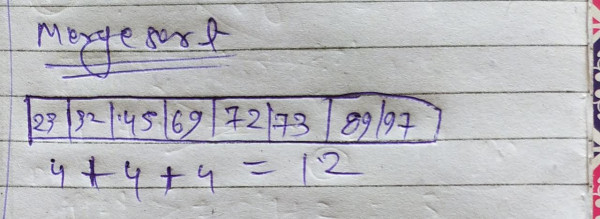 Merge sort
23 32 45 69 72 73 89 97
4 + 4 + 4 = 12